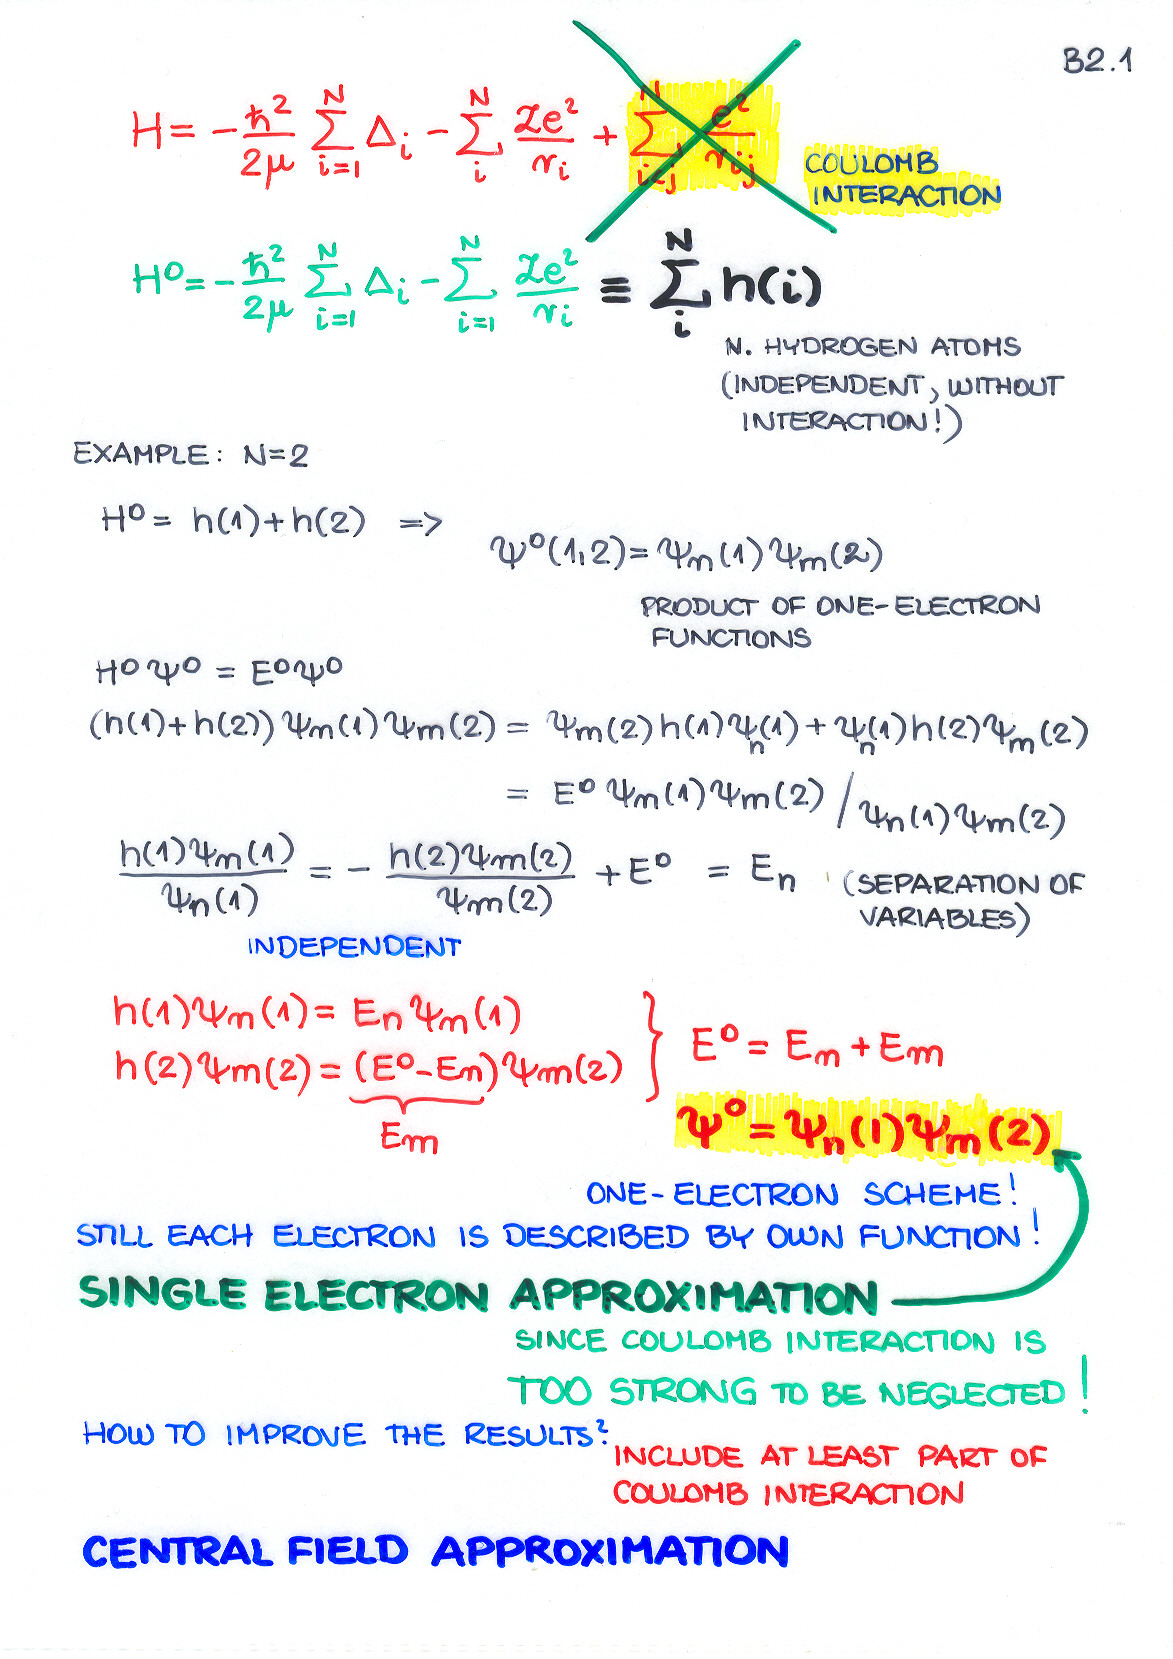 B2.1
H = -ħ²/2μ ∑_{i=1}^{N} Δ_i - ∑_{i}^{N} Ze²/r_i + ∑_{i<j}^{N} e²/r_ij
COULOMB
INTERACTION
H⁰ = -ħ²/2μ ∑_{i=1}^{N} Δ_i - ∑_{i=1}^{N} Ze²/r_i ≡ ∑_{i}^{N} h(i)
N. HYDROGEN ATOMS
(INDEPENDENT, WITHOUT
INTERACTION!)
EXAMPLE: N=2
H⁰ = h(1)+h(2) =>
Ψ⁰(1,2) = Ψ_m(1) Ψ_m(2)
PRODUCT OF ONE-ELECTRON
FUNCTIONS
H⁰Ψ⁰ = E⁰Ψ⁰
(h(1)+h(2)) Ψ_m(1) Ψ_m(2) = Ψ_m(2) h(1) Ψ_n(1) + Ψ_n(1) h(2) Ψ_m(2)
= E⁰ Ψ_m(1) Ψ_m(2) / Ψ_n(1) Ψ_m(2)
h(1)Ψ_m(1)/Ψ_n(1) = - h(2)Ψ_m(2)/Ψ_m(2) + E⁰ = E_n (SEPARATION OF
VARIABLES)
INDEPENDENT
h(1)Ψ_m(1) = E_n Ψ_m(1)
h(2)Ψ_m(2) = (E⁰-E_m)Ψ_m(2) } E⁰ = E_m + E_m
E_m
Ψ⁰ = Ψ_n(1) Ψ_m(2)
ONE-ELECTRON SCHEME!
STILL EACH ELECTRON IS DESCRIBED BY OWN FUNCTION!
SINGLE ELECTRON APPROXIMATION
SINCE COULOMB INTERACTION IS
TOO STRONG TO BE NEGLECTED!
HOW TO IMPROVE THE RESULTS?
INCLUDE AT LEAST PART OF
COULOMB INTERACTION
CENTRAL FIELD APPROXIMATION